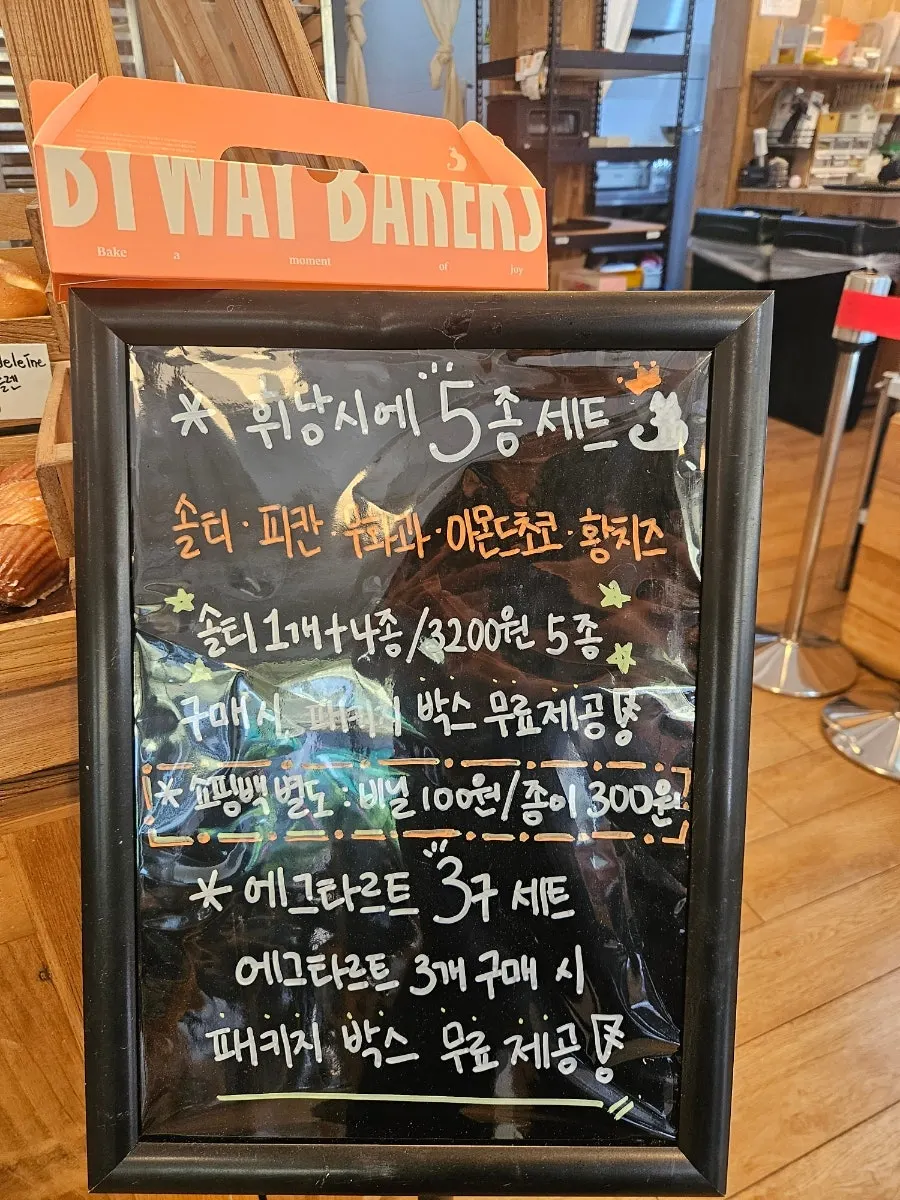 BYWAY BAKERS
Bake a moment of joy
deleine
* 휘낭시에 5종 세트
솔티 · 피칸 · 무화과 · 아몬드초코 · 황치즈
솔티 1개+4종/3200원 5종
구매 시 패키지 박스 무료제공!
* 쇼핑백 별도 : 비닐 100원/종이 300원
* 에그타르트 3구 세트
에그타르트 3개 구매 시
패키지 박스 무료 제공!